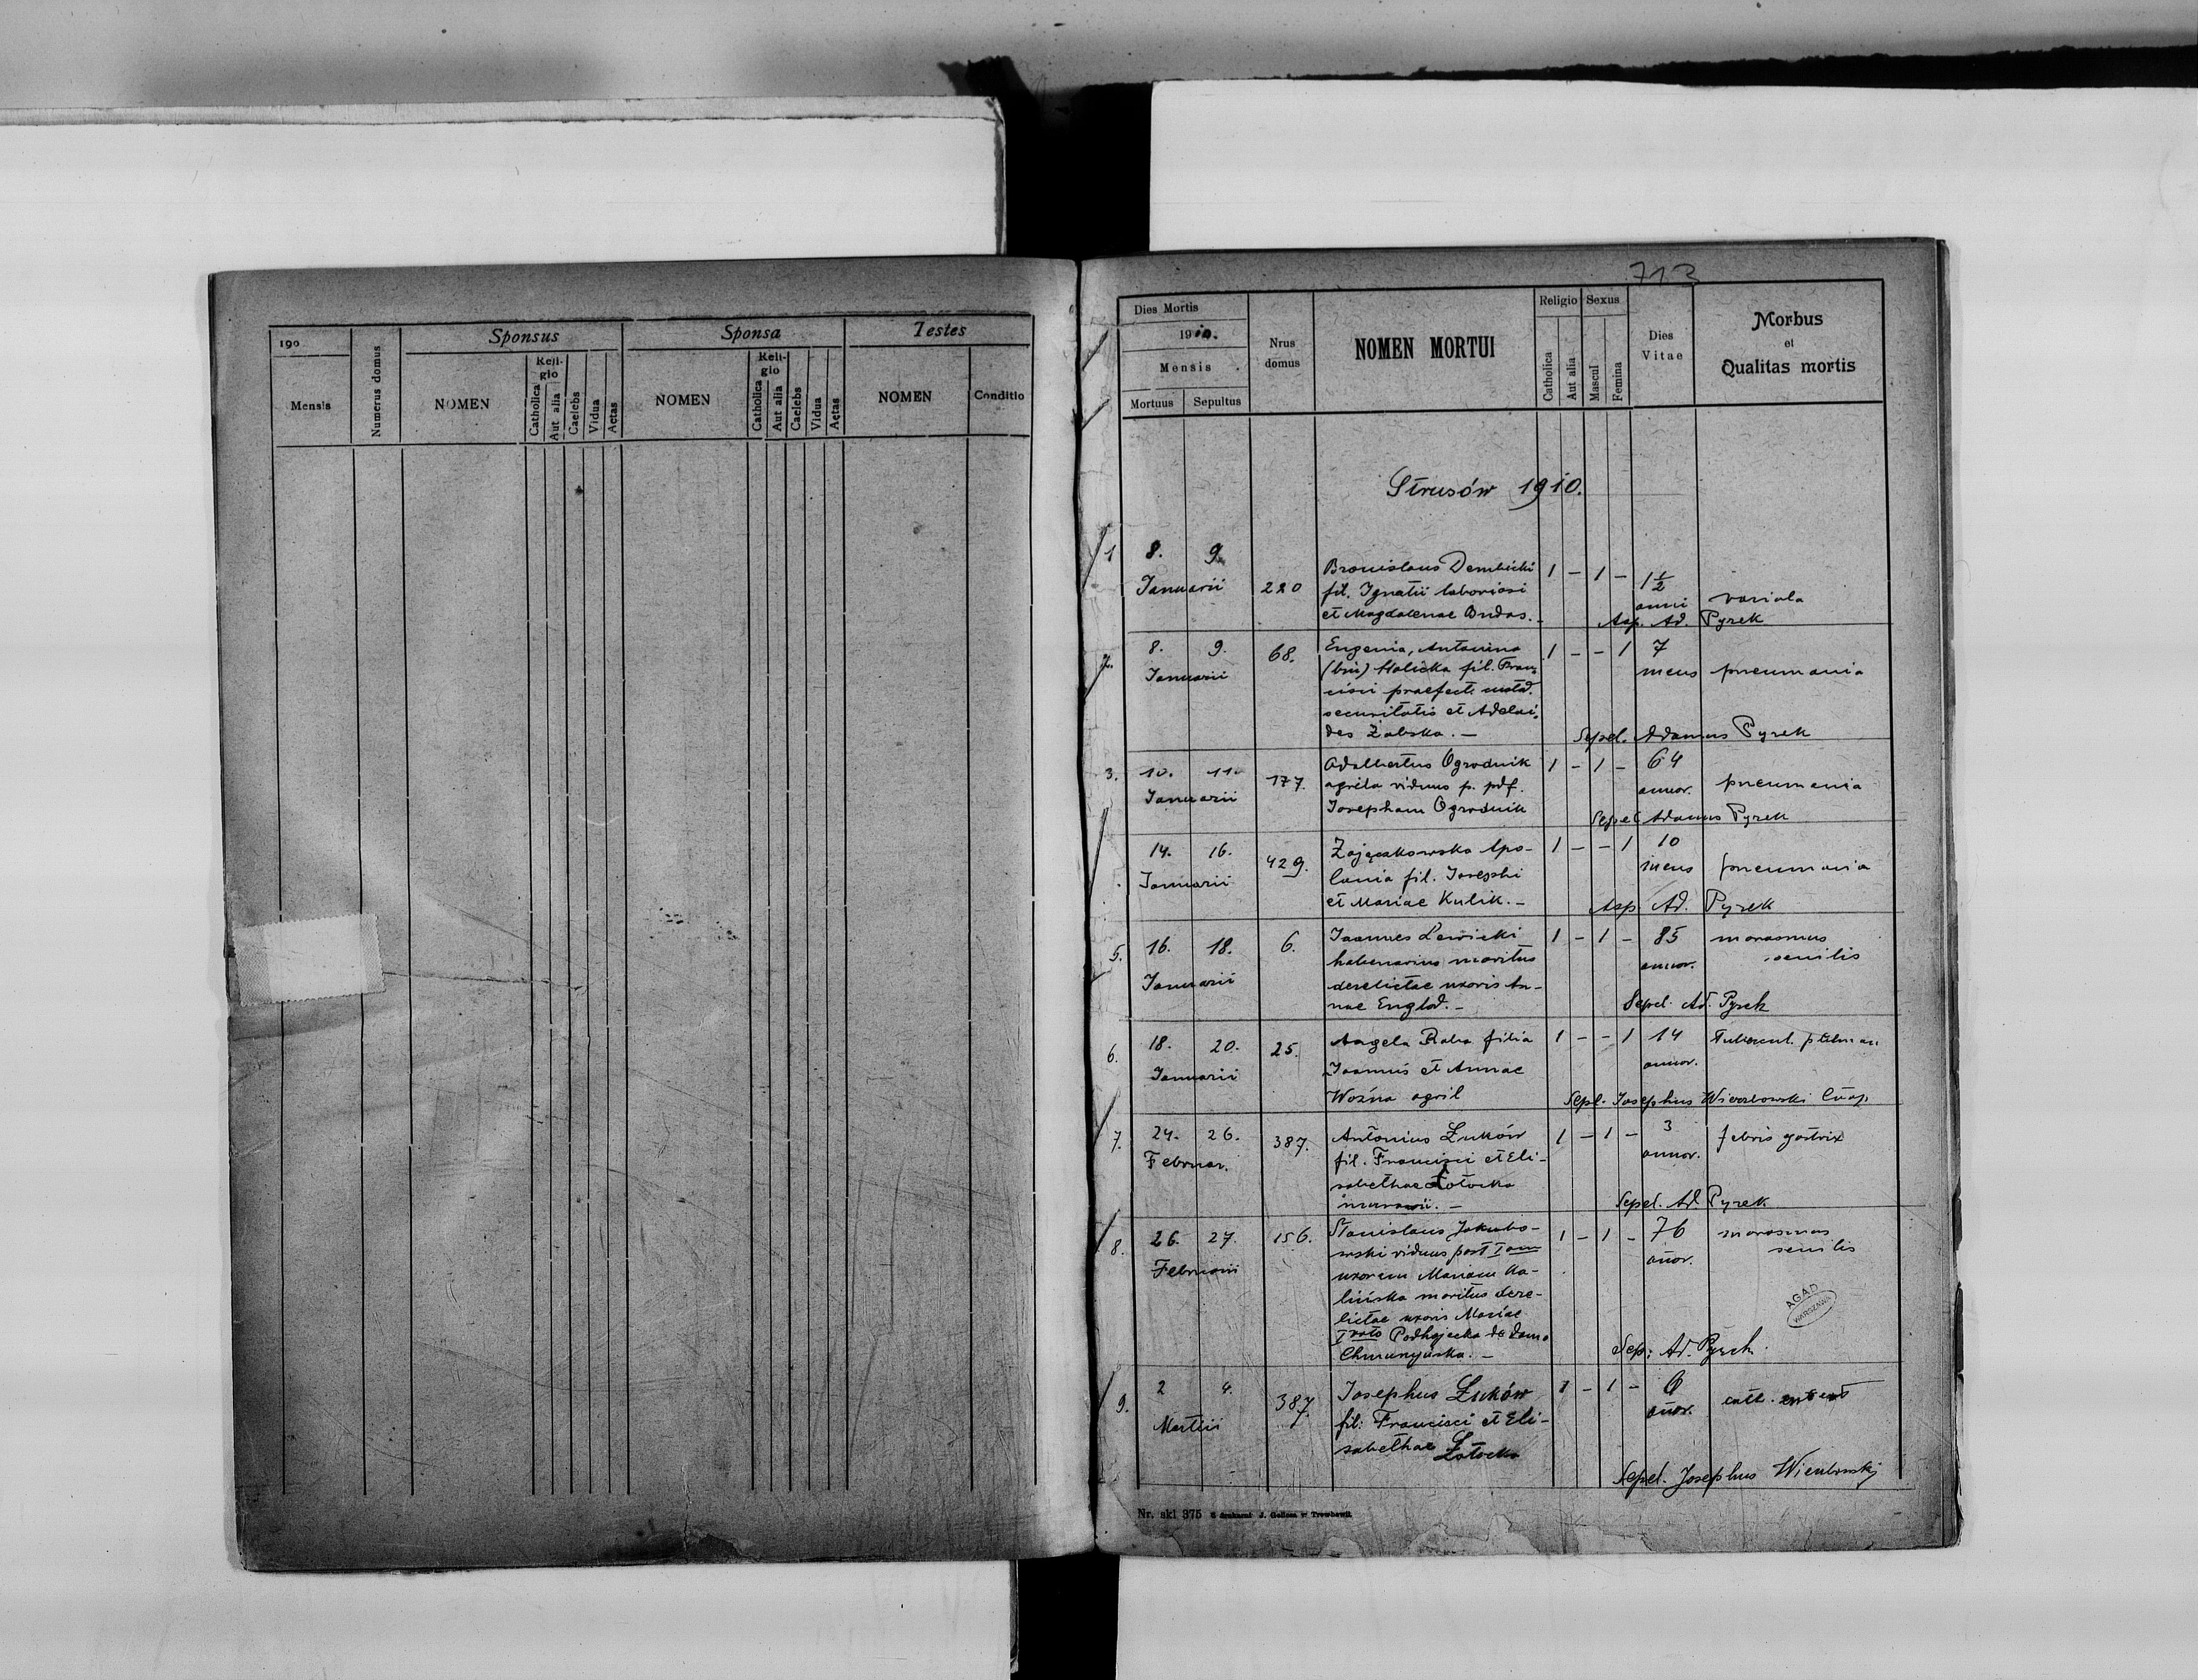 190
Mensis
Numerus domus
Sponsus
NOMEN
Reli-
gio
Catholica
Aut alia
Caelebs
Vidua
Aetas
Sponsa
NOMEN
Reli-
gio
Catholica
Aut alia
Caelebs
Vidua
Aetas
Testes
NOMEN
Conditio
713
Dies Mortis
1910.
Mensis
Mortuus
Sepultus
Nrus
domus
NOMEN MORTUI
Religio
Catholica
Aut alia
Sexus
Mascul
Femina
Dies
Vitae
Morbus
et
Qualitas mortis
Strusów 1910.
1 8. 9.
Januarii 220
Bronislaus Dembicki
fil. Ignatii laboriosi
et Magdalenae Budas.-
1 - 1 - 1½
anni variola
Asp. Ad. Pyrek
2. 8. 9. 68.
Januarii
Eugenia, Antonina
(bin) Halicka fil. Fran-
cisci praefecti custod.
securitatis et Adelai-
des Żabska.-
1 - - 1 7
mens pneumonia
Sepel. Adamus Pyrek
3. 10. 11. 177.
Januarii
Adalbertus Ogrodnik
agricola viduus p. pdf.
Josepham Ogrodnik
1 - 1 - 64
annor. pneumonia
Sepel Adamus Pyrek
14. 16. 429.
Januarii
Zajączkowska Apo-
lonia fil. Josephi
et Mariae Kulik.-
1 - - 1 10
mens pneumonia
Asp Ad. Pyrek
5. 16. 18. 6.
Januarii
Joannes Lewicki
halenarius maritus
derelictae uxoris An-
nae Englod.-
1 - 1 - 85
annor. marasmus
senilis
Sepel. Ad. Pyrek
6. 18. 20. 25.
Januarii
Angela Raba filia
Joannis et Annae
Woźna agril
1 - - 1 14
annor.
Tubercul.
Sepl. Josephus Wierzbowski Coop.
7. 24. 26. 387.
Februar.
Antonius Łuków
fil. Francisci et Eli-
sabethae Łotocka
1 - 1 - 3
annor. febris gastrix
Sepel. Ad. Pyrek
8. 26. 27. 156.
Februarii
Stanislaus Jakubo-
wski viduus post Iam
uxorem Mariam Ka-
lińska maritus dere-
lictae uxoris Mariae
I voto Podhajecka de domo
1 - 1 - 76
añor. marasmus
senilis
Sep: Ad. Pyrek.
AGAD
WARSZAWA
9. 2 4. 387.
Martii
Josephus Łuków
fil: Francisci et Eli-
sabethae Łotocka
1 - 1 - 6
añor.
Sepel. Josephus Wierzbowski
Nr. skl 375 Z drukarni J. Gollera w Trembowli